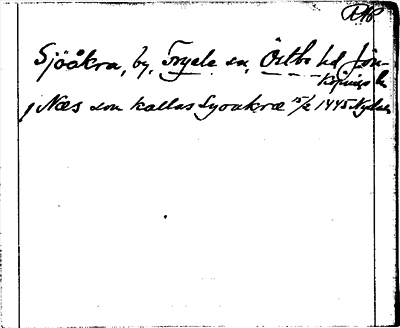 Sjöåkra, by, Fryele sn, Östbo hd Jön-
köpings l.
i Næs som kallas Syoakræ 15/2 1445 Nydala